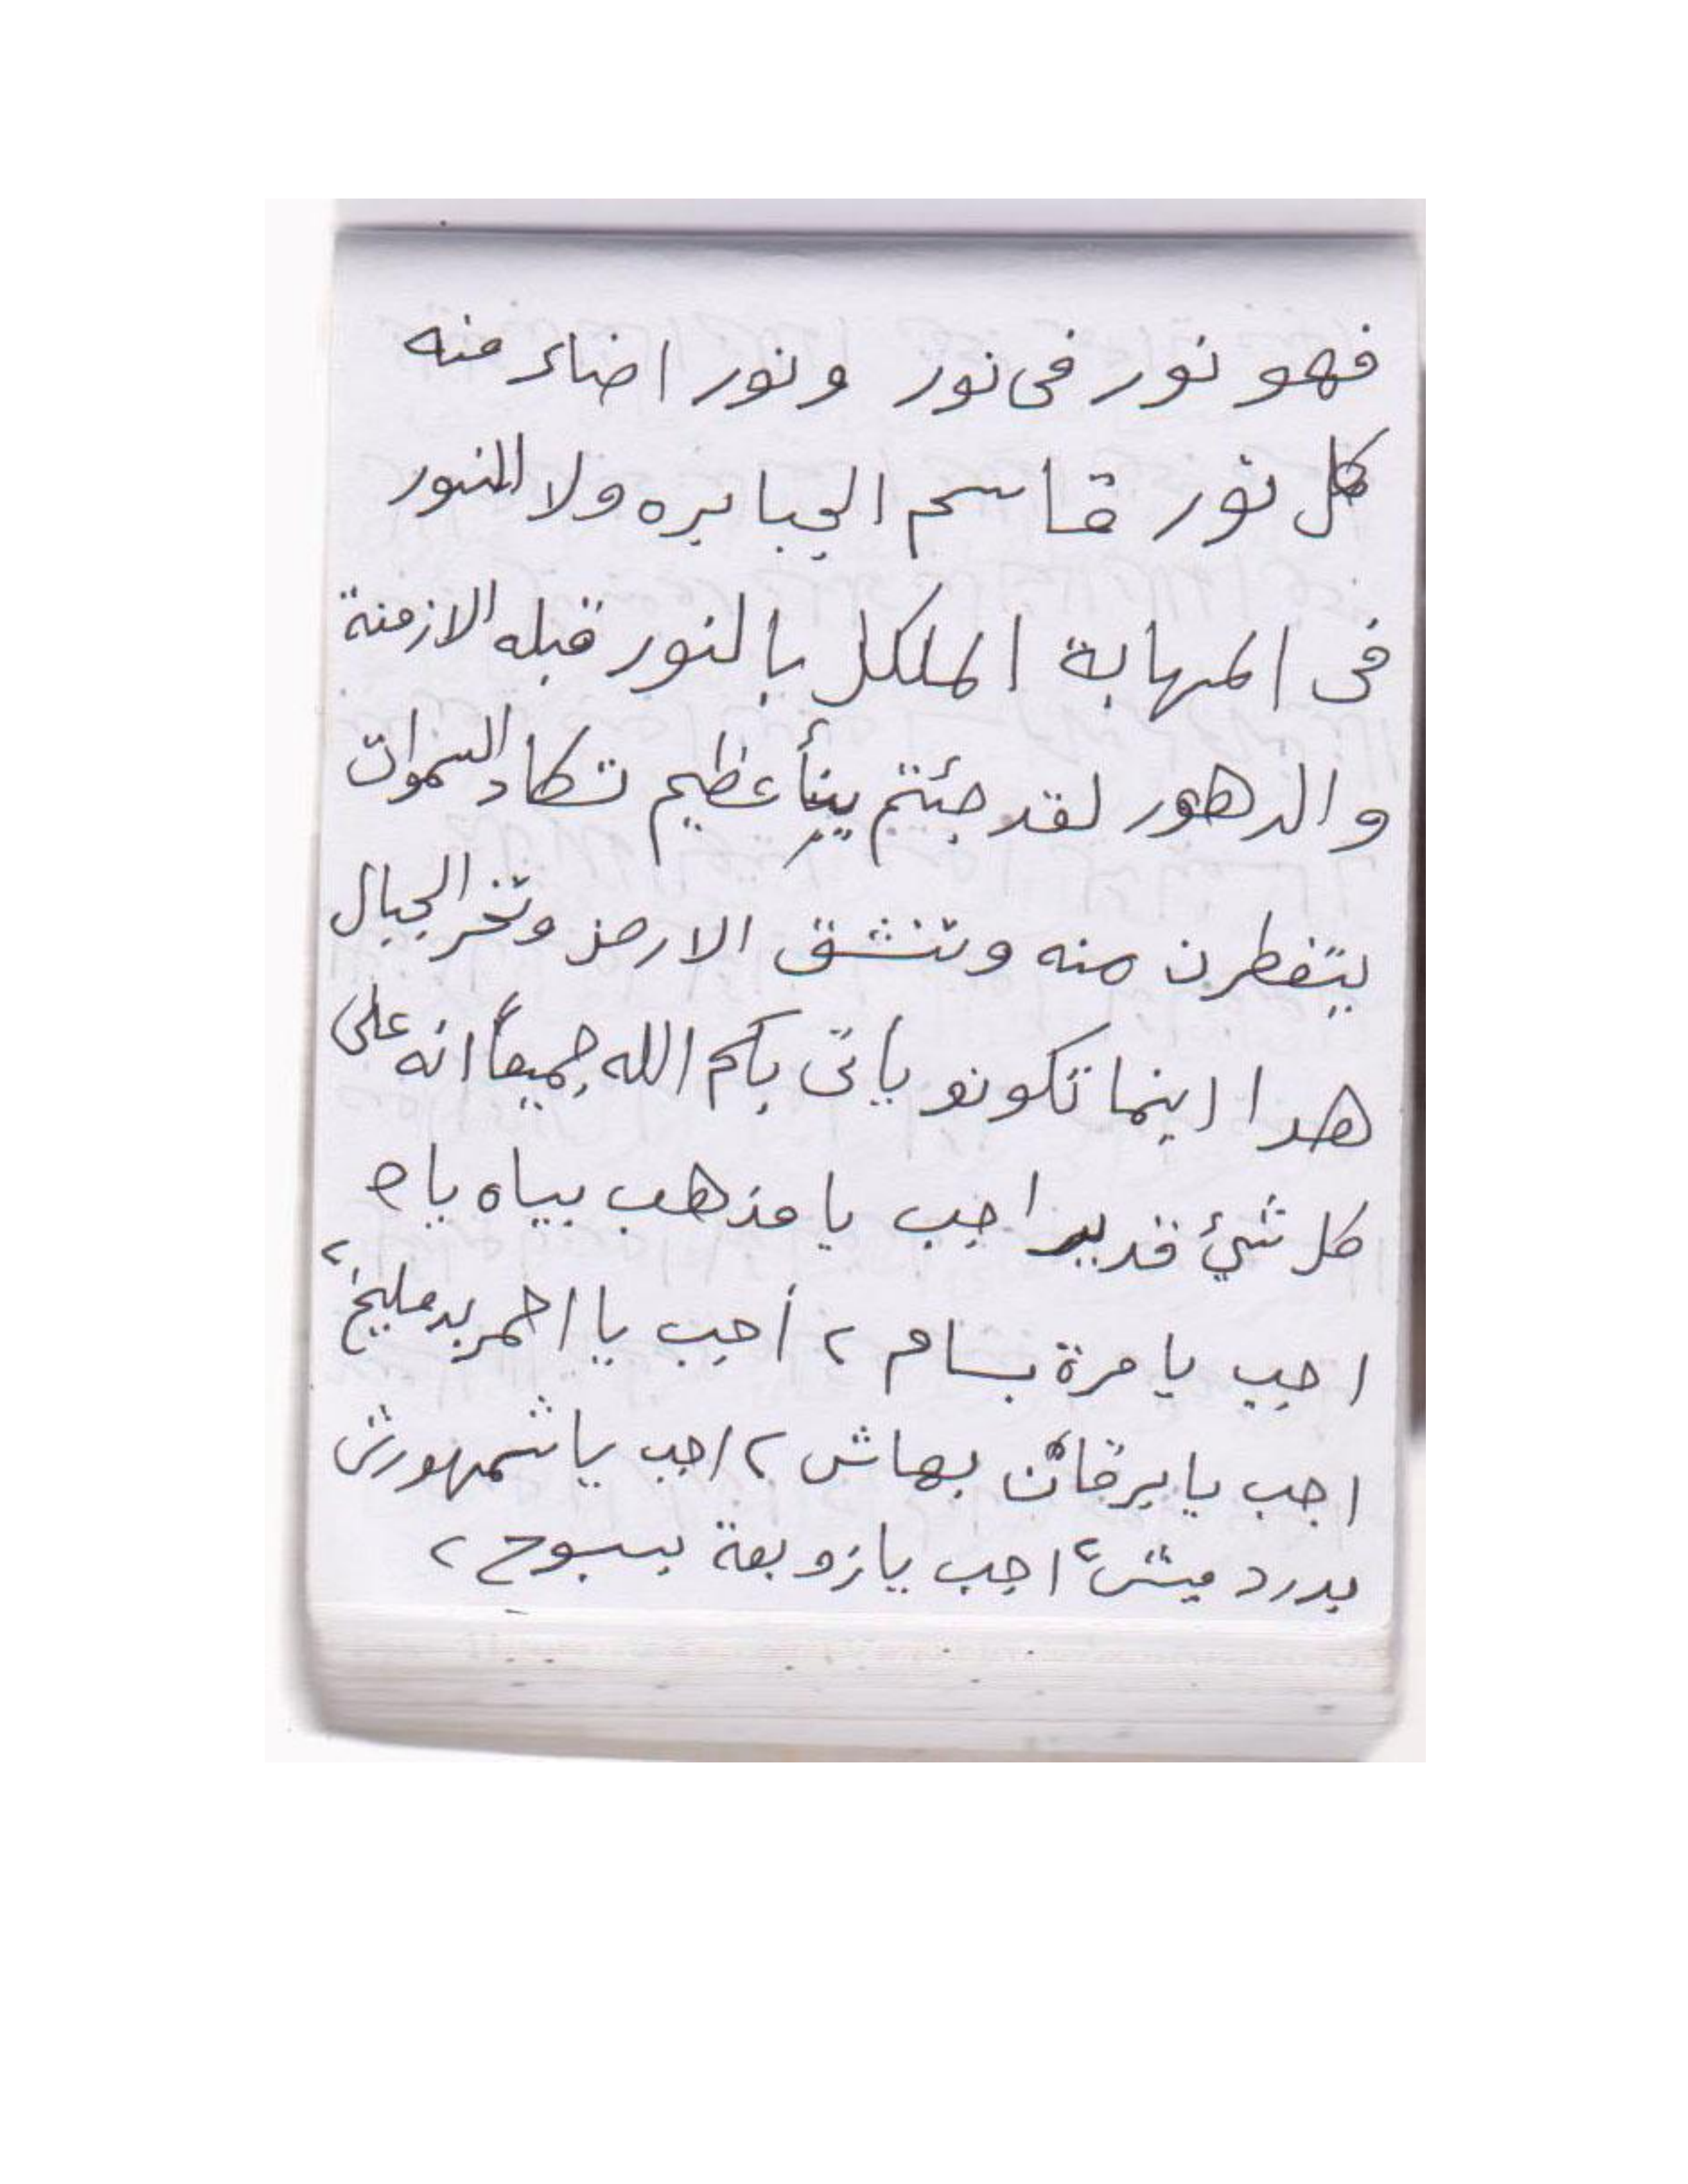 فهو نور فى نور ونور اضاء منه
كل نور قاسم الجبابره ولا المنبور
فى المهابة المكلل بالنور قبله الازمنة
والدهور لقد جئتم بنبأ عظيم تكاد السموات
يتفطرن منه وتنشق الارض وتخر الجبال
هدا اينما تكونو يأتى بكم الله جميعاً انه على
كل شئ قدير اجب يا مذهب بياه ياه
اجب يا مرة بسام ٢ أجب يا احمر بدمليخ ٢
اجب يا برقان بهاش ٢ اجب يا شمهورش
بدردميش ٢ اجب يا زوبعة بسبوح ٢